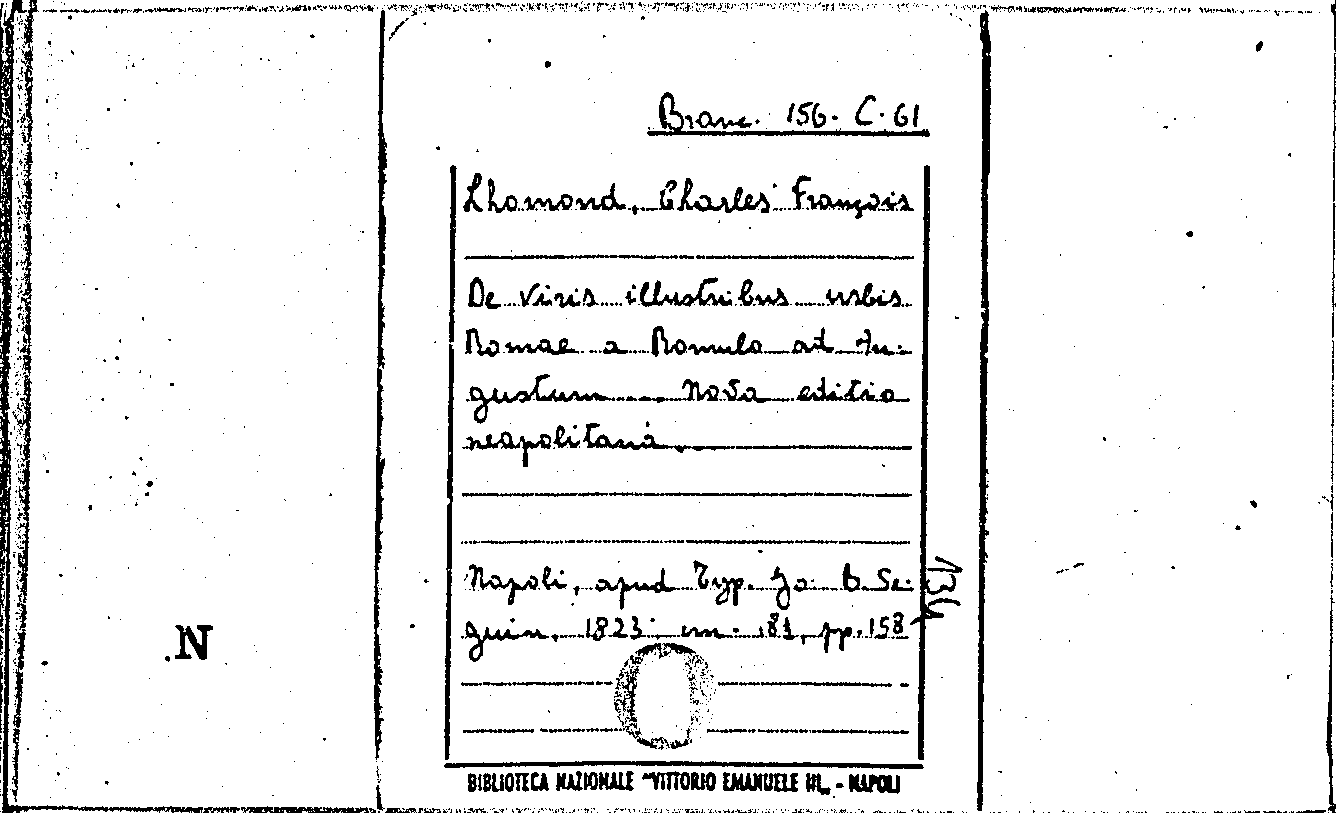 Branc. 156. C. 61
Lhomond, Charles François
De viris illustribus urbis
Romae a Romulo ad Au-
gustum ... Nova editio
neapolitana.
Napoli, apud Typ. Jo. B. Se-
guin, 1823. cm. 18, pp. 158
134
N
BIBLIOTECA NAZIONALE "VITTORIO EMANUELE III„ - NAPOLI